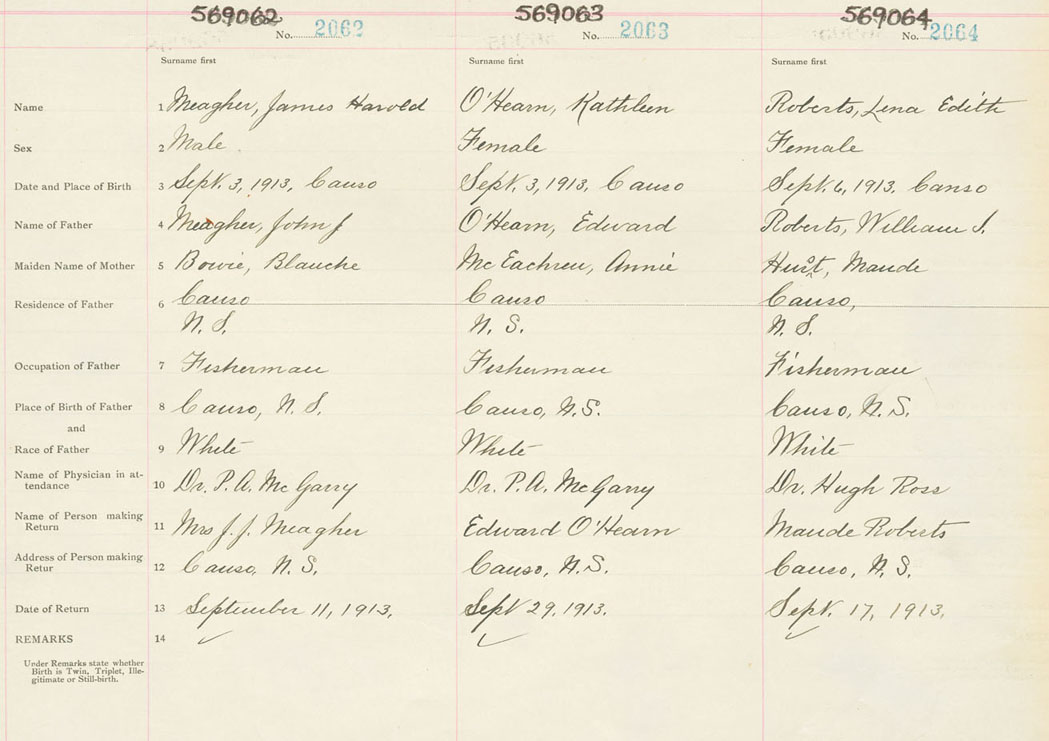 569062 569063 569064
No. 2062 No. 2063 No. 2064
Surname first Surname first Surname first
Name 1 Meagher, James Harold O'Hearn, Kathleen Roberts, Lena Edith
Sex 2 Male Female Female
Date and Place of Birth 3 Sept. 3, 1913, Canso Sept. 3, 1913, Canso Sept. 6, 1913, Canso
Name of Father 4 Meagher, John J O'Hearn, Edward Roberts, William J.
Maiden Name of Mother 5 Bowie, Blanche McEachren, Annie Hurst, Maude
Residence of Father 6 Canso Canso Canso,
N. S. N. S. N. S.
Occupation of Father 7 Fisherman Fisherman Fisherman
Place of Birth of Father 8 Canso, N. S. Canso, N.S. Canso, N. S.
and
Race of Father 9 White White White
Name of Physician in at-
tendance 10 Dr. P.A. McGarry Dr. P.A. McGarry Dr. Hugh Ross
Name of Person making
Return 11 Mrs J. J. Meagher Edward O'Hearn Maude Roberts
Address of Person making
Retur 12 Canso, N. S. Canso, N.S. Canso, N. S.
Date of Return 13 September 11, 1913. Sept 29, 1913. Sept. 17, 1913.
REMARKS 14
Under Remarks state whether
Birth is Twin, Triplet, Ille-
gitimate or Still-birth.